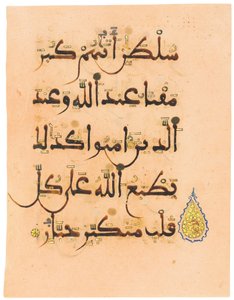 سلطن أتيهم كبر
مقتا عند الله وعند
الذين امنوا كذلك
يطبع الله على كل
قلب متكبر جبار